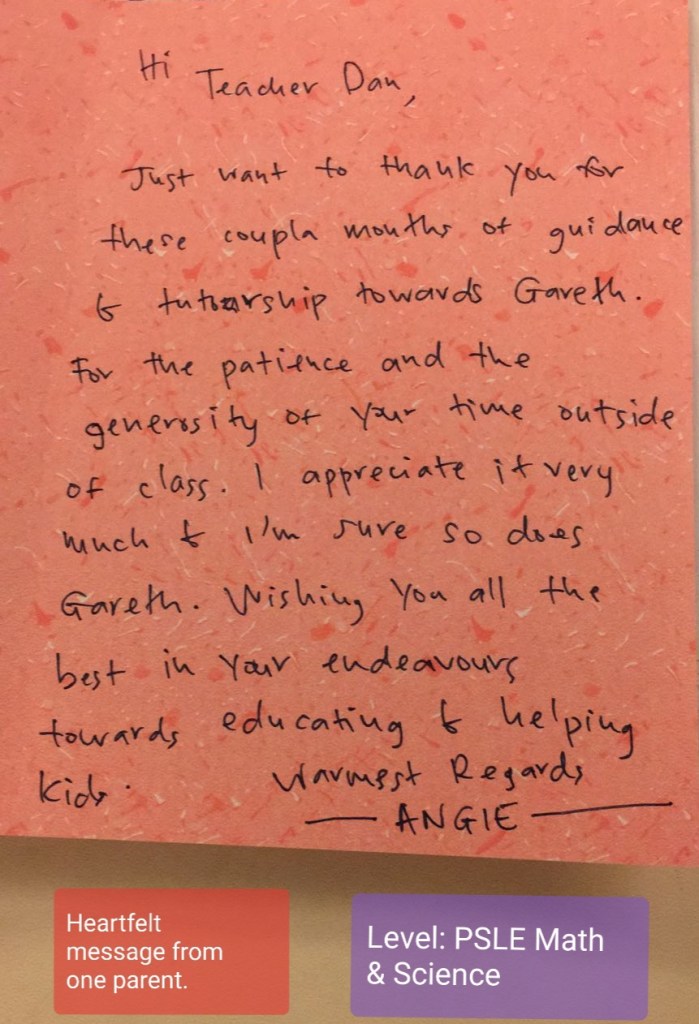 Hi Teacher Dan,
Just want to thank you for
these coupla months of guidance
& tutorship towards Gareth.
For the patience and the
generosity of your time outside
of class. I appreciate it very
much & I'm sure so does
Gareth. Wishing You all the
best in Your endeavours
towards educating & helping
kids.
Warmest Regards
— ANGIE —
Heartfelt
message from
one parent.
Level: PSLE Math
& Science